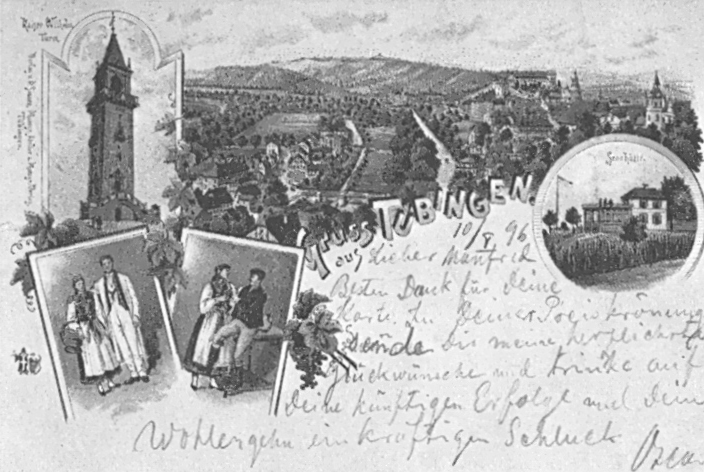 Kaiser Wilhelm
Turm
Gruss
aus
TÜBINGEN.
10/V 96
Lieber Manfred
Besten Dank für deine
Karte. Zu Deiner Preiskrönung
sende dir meine herzlichsten
Glückwünsche und trinke auf
deine künftigen Erfolge und dein
Wohlergehn ein kräftigen Schluck
Oscar